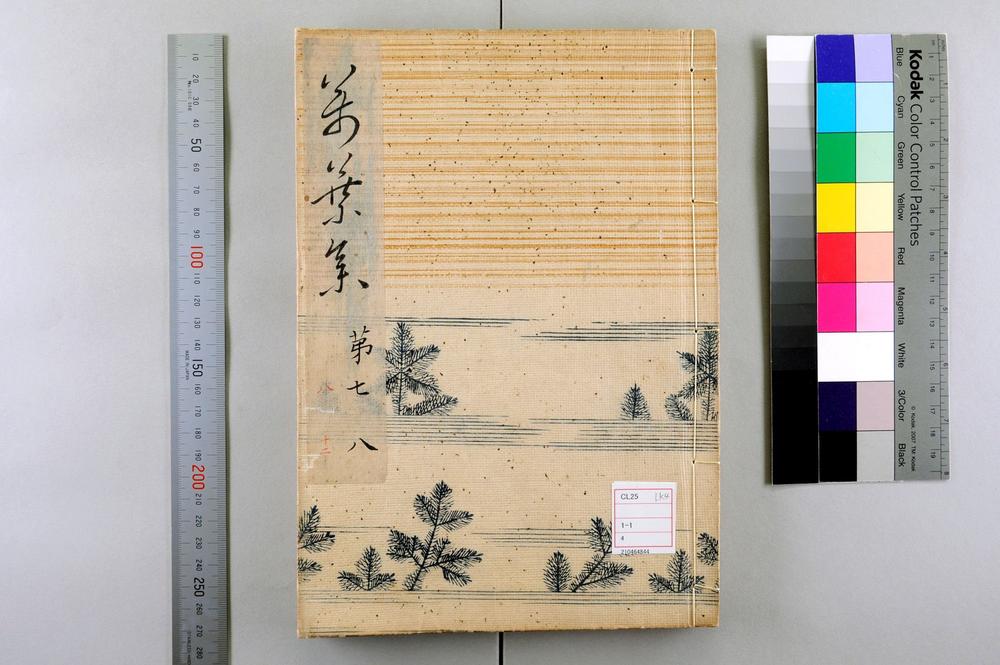 萬葉集
第七 八
十二
CL25
1-1
4
210464844
Kodak Color Control Patches
Blue
Cyan
Green
Yellow
Red
Magenta
White
3/Color
Black
© Kodak, 2007 TM: Kodak
10
20
30
40
50
60
70
80
90
100
110
120
130
140
150
160
170
180
190
200
210
220
230
240
250
260
270
280
MADE IN JAPAN
1
2
3
4
5
6
7
8
9
10
11
12
13
14
15
16
17
18
19